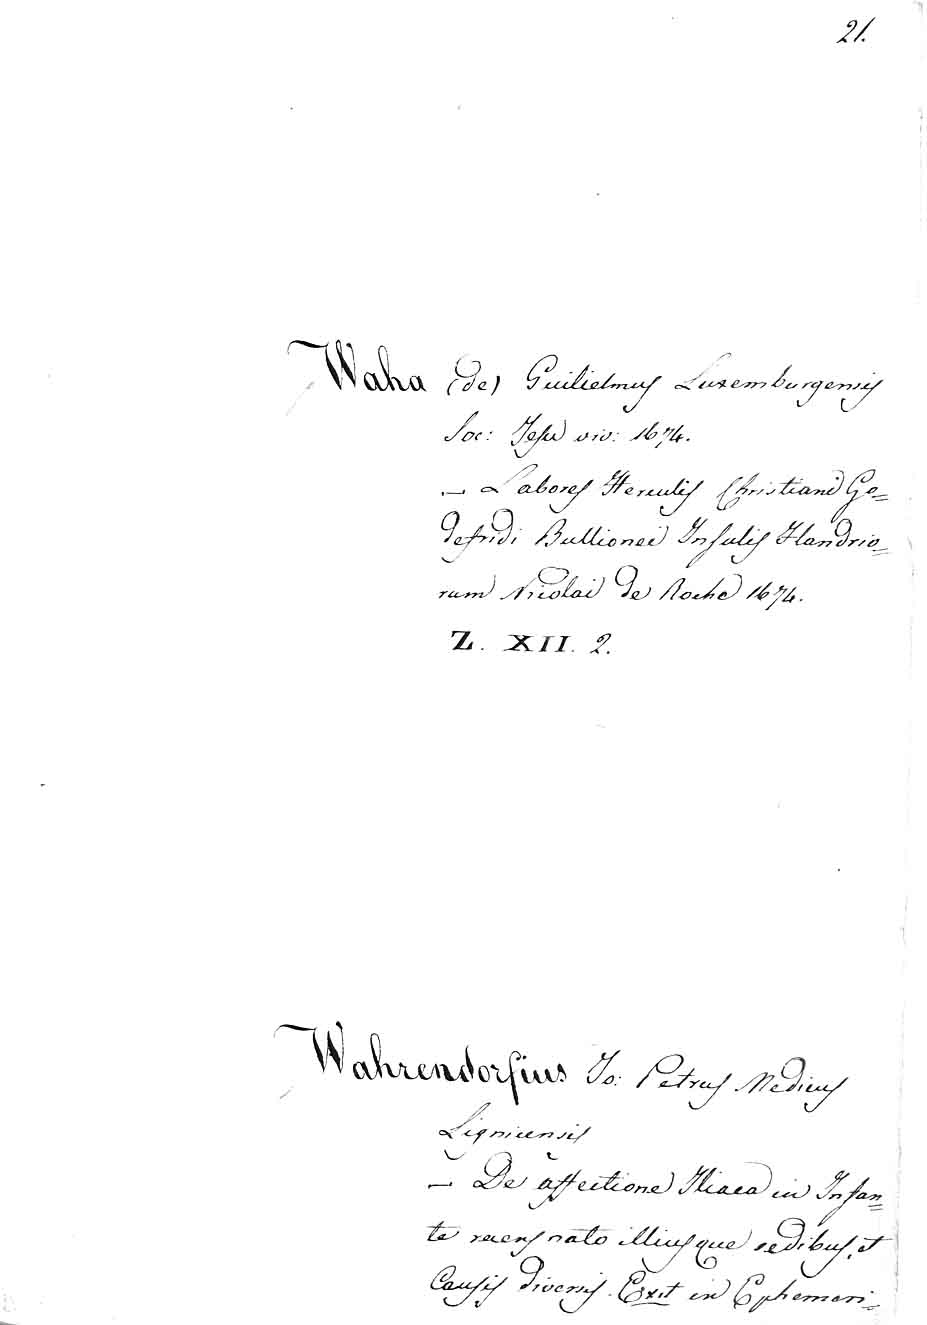 21.
Waha (de) Guilielmus Luxemburgensis
Soc: Jesu viv: 1674.
— Labores Herculis Christiani Go=
defridi Bullionei Insulis Flandrio=
rum Nicolai de Rache 1674.
Z. XII. 2.
Wahrendorfius Jo: Petrus Medicus
Lignicensis
— De affectione Iliaca in Infan=
te recens nato illiusque sedibus, et
Causis diversis. Exit in Ephemeri=